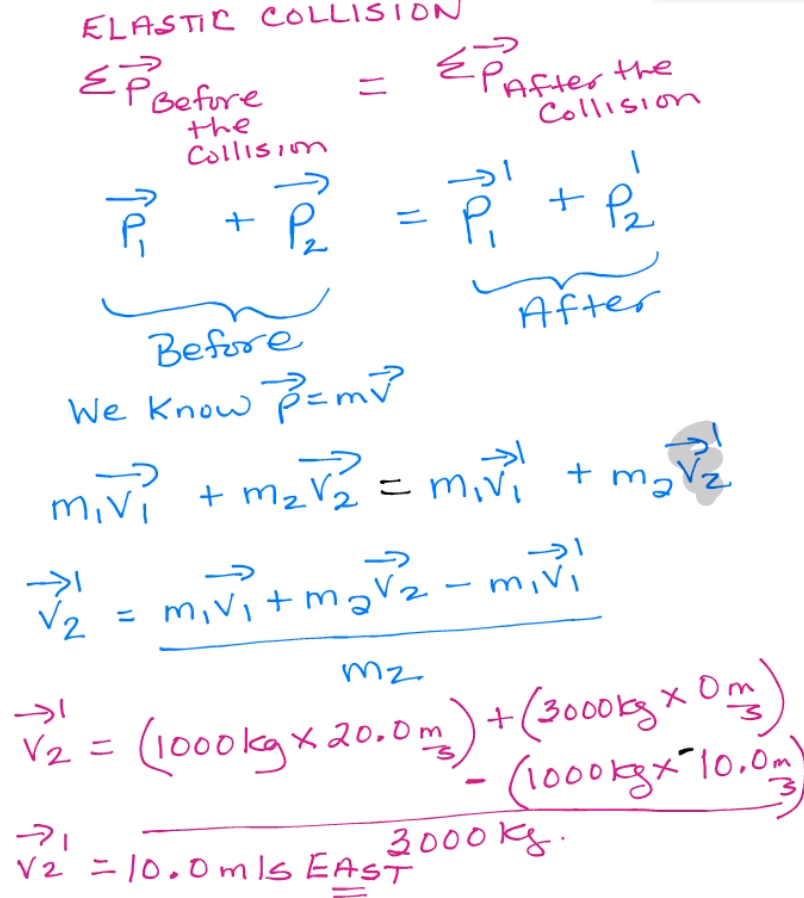 ELASTIC COLLISION
Σp⃗ Before the Collision = Σp⃗ After the Collision
p⃗₁ + p⃗₂ = p⃗₁' + p₂'
Before After
We Know p⃗ = mv⃗
m₁v⃗₁ + m₂v⃗₂ = m₁v⃗₁' + m₂v⃗₂'
v⃗₂' = m₁v⃗₁ + m₂v⃗₂ - m₁v⃗₁'
m₂
v⃗₂' = (1000 kg × 20.0 m/s) + (3000 kg × 0 m/s)
- (1000 kg × -10.0 m/s)
3000 kg.
v⃗₂' = 10.0 m/s EAST